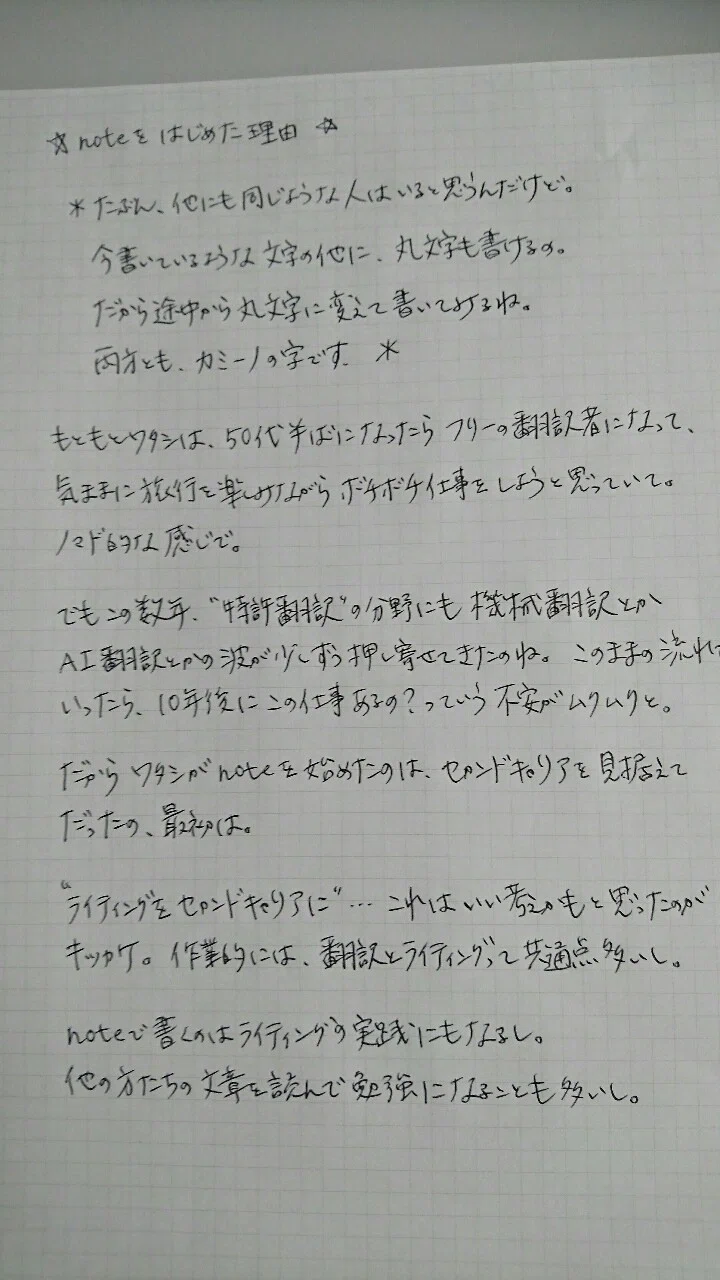 ☆noteをはじめた理由☆
＊たぶん、他にも同じような人はいると思うんだけど。
今書いているような文字の他に、丸文字も書けるの。
だから途中から丸文字に変えて書いてみるね。
両方とも、カミーノの字です。＊
もともとワタシは、50代半ばになったらフリーの翻訳者になって、
気ままに旅行を楽しみながらボチボチ仕事をしようと思っていて。
ノマド的な感じで。
でもこの数年、"特許翻訳"の分野にも機械翻訳とか
AI翻訳とかの波が少しずつ押し寄せてきたのね。このままの流れに
いったら、10年後にこの仕事あるの？っていう不安がムクムクと。
だからワタシがnoteを始めたのは、セカンドキャリアを見据えて
だったの、最初は。
"ライティングをセカンドキャリアに"…これはいい考えかもと思ったのが
キッカケ。作業的には、翻訳とライティングって共通点多いし。
noteで書くのはライティングの実践にもなるし。
他の方たちの文章を読んで勉強になることも多いし。